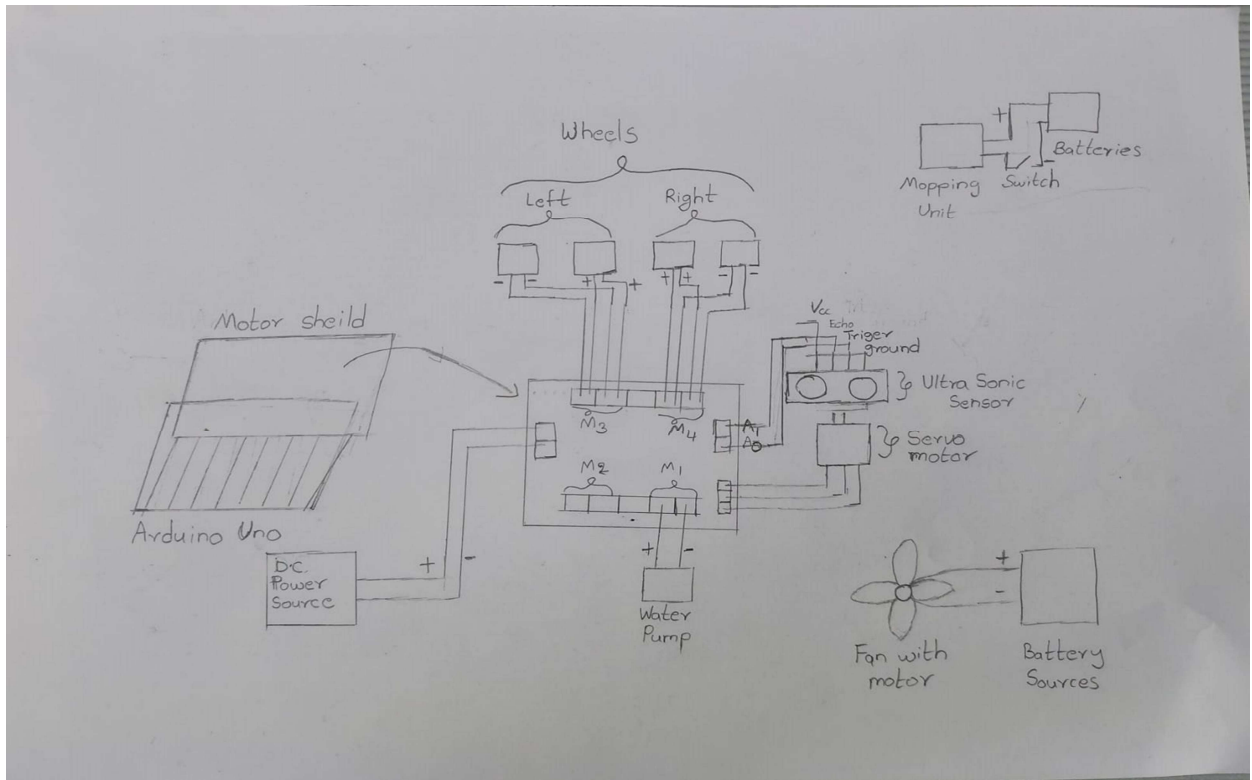 Wheels
Left
Right
+
-
Batteries
Mopping
Unit
Switch
- -
+ +
+ +
- -
Motor sheild
Arduino Uno
Vcc
Echo
Triger
ground
Ultra Sonic
Sensor
Servo
motor
M3
M4
A1
A0
M2
M1
D.C.
Power
Source
+
-
+
-
Water
Pump
Fan with
motor
+
-
Battery
Sources